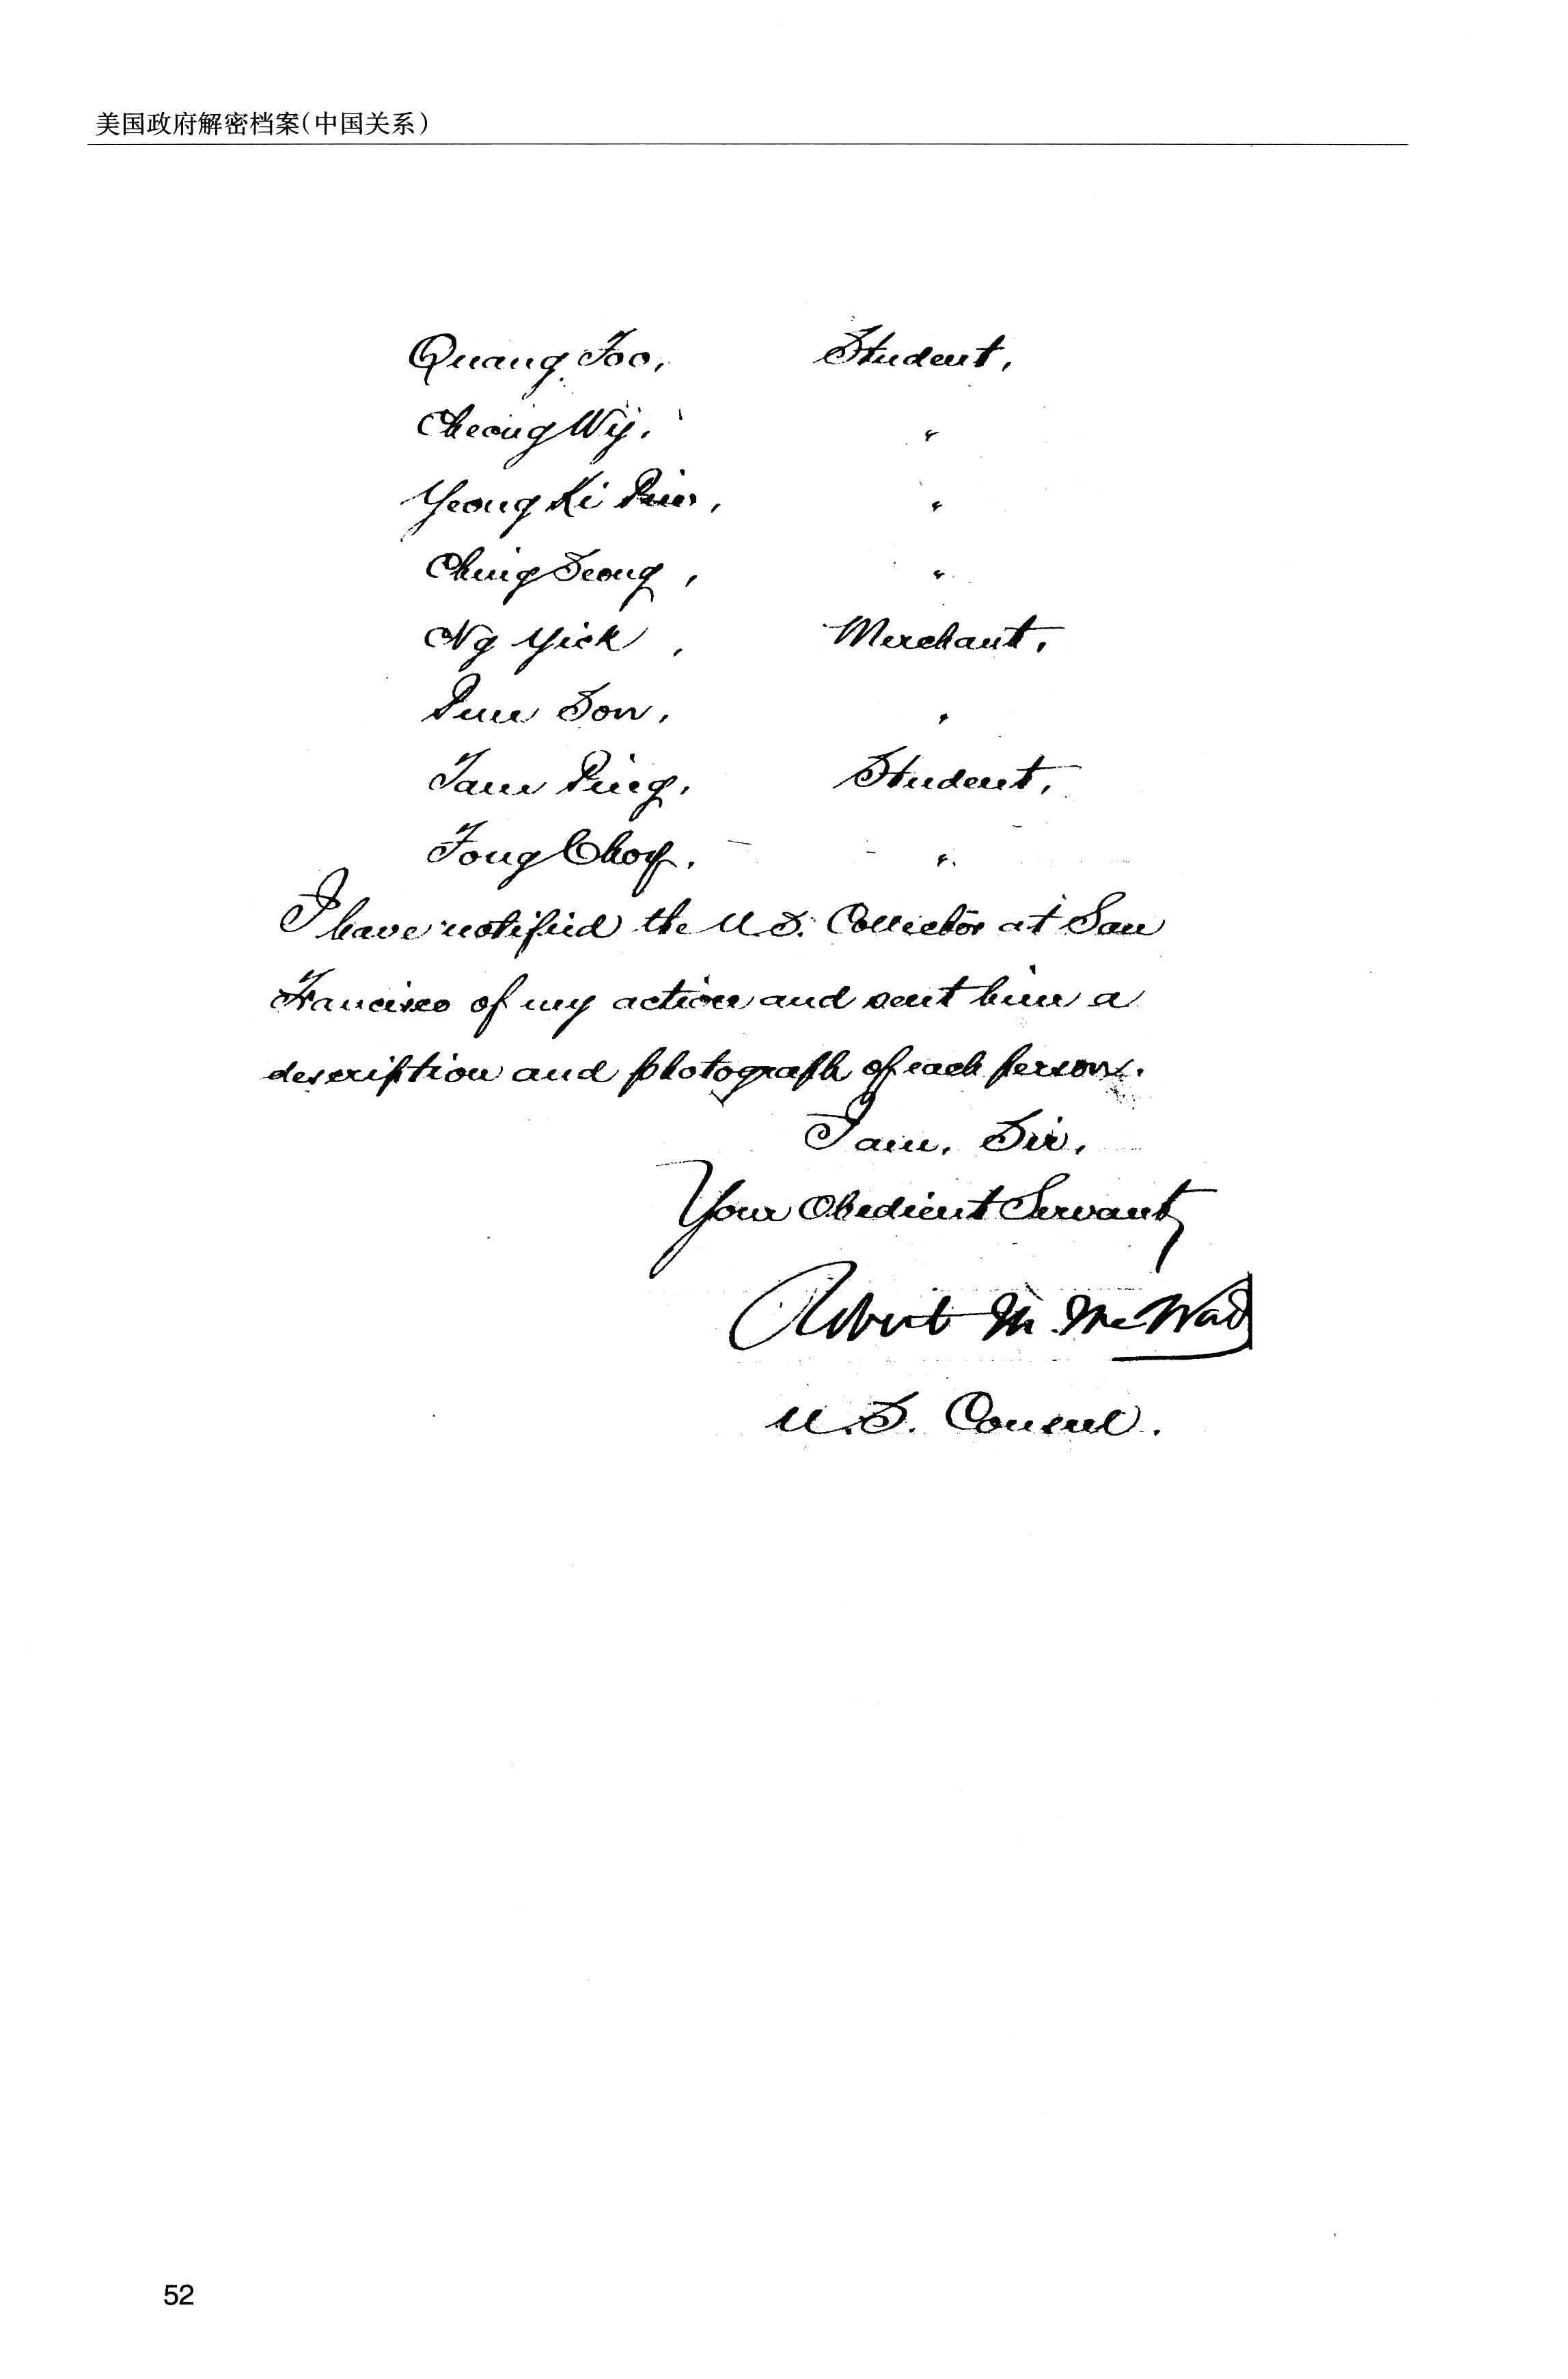 美国政府解密档案(中国关系)
Quang Foo, Student,
Cheong Wy, "
Yeong Ki "
Ching Seong, "
Ng Yick, Merchant,
Son, "
Tam Ping, Student,
Fong Choy. "
I have notified the U.S. Collector at San
Francisco of my action and sent him a
description and photograph of each person.
I am, Sir,
Your Obedient Servant,
Robert M. McWad
U.S. Consul.
52